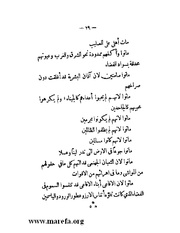 — ٢٩ —
مات أهلي على الصليب
ماتوا وأكفهم ممدودة نحو الشرق والغرب وعيونهم
محدقة بسواد الفضاء
ماتوا صامتين لأن آذان البشرية قد أغلقت دون
صراخهم
ماتوا لأنهم لم يحبوا أعداءهم كالجبناء، ولم يكرهوا
محبيهم كالجاحدين
ماتوا لأنهم لم يكونوا مجرمين
ماتوا لأنهم لم يظلموا الظالمين
ماتوا لأنهم كانوا مسالمين
ماتوا جوعاً في الأرض التي تدر لبناً وعسلا
ماتوا لأن الثعبان الجهنمي قد التهم كل ما في حقولهم
من المواشي وما في اهرائهم من الأقوات
ماتوا لأن الأفاعي أبناء الأفاعي قد نفثوا السموم في
الفضاء الذي كانت تملأه أنفاس الأرز وعطور الورود والياسمين
***
www.marefa.org